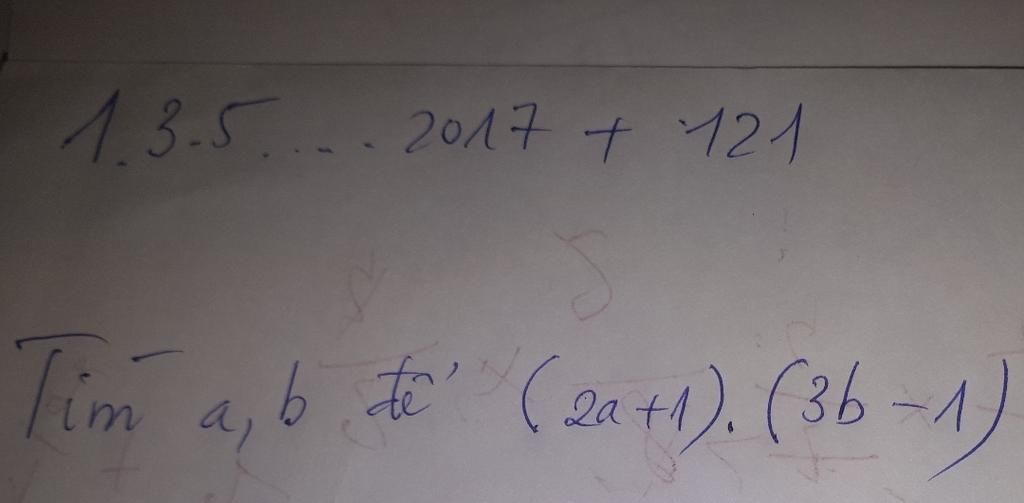 1.3.5.... 2017 + 121
Tìm a, b để (2a+1).(3b-1)